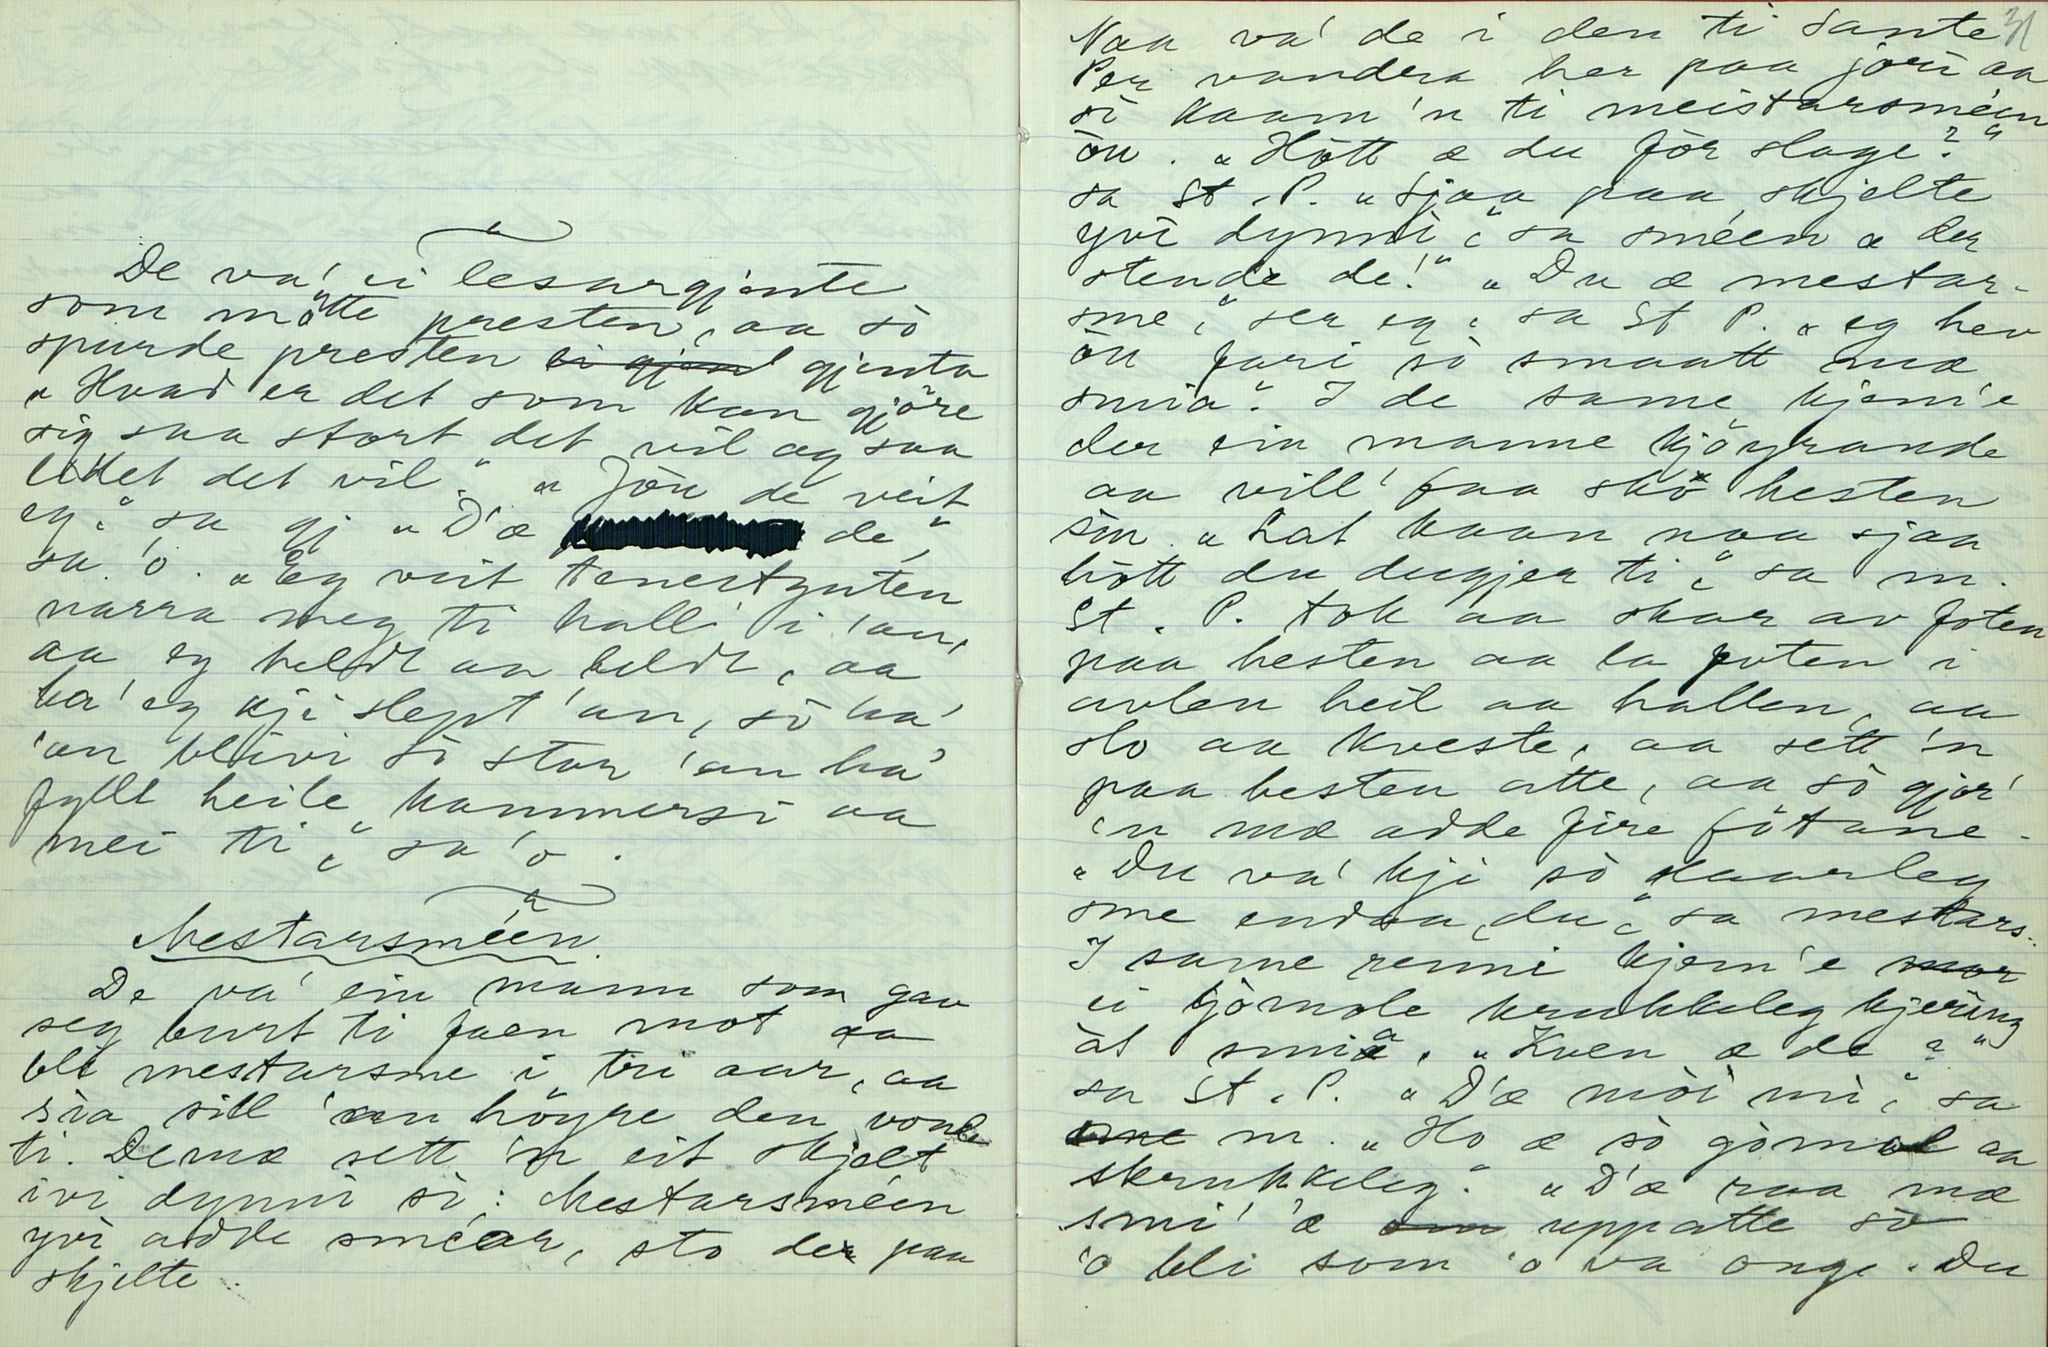 De va' ei lesargjente
som mötte presten, aa so
spurde presten ei gjent gjenta
"Hvad er det som kan gjöre
sig saa stort det vil og saa
lidet det vil." "Jou de veit
eg," sa gj "D'æ de,"
sa 'o. "Eg veit tenestguten
narra meg ti hall' i 'an,
aa eg heldt an heldt, aa
ha' eg kji slept 'an, so ha'
'an blivi so stor 'an ha'
fyllt heile kammersi aa
mei ti," sa 'o.
Mestarsméen.
De va' ein mann som gav
seg burt ti faen mot aa
bli mestarsme i tri aar, aa
sia sill 'an höyre den vonde
ti. Demæ sett 'n eit skjelt
ivi dynni si: Mestarsméen
yvi adde sméar, sto der paa
skjelte.
31
Naa va' de i den ti Sante
Per vandra her paa jori aa
so kaam 'n ti meistarsméen
òu. "Hòtt æ du fòr slage?"
sa St. P. "Sjaa paa skjelte
yvi dynni," sa sméen "der
stende de!" "Du æ mestar-
sme," ser eg, sa St P. "eg hev
òu fari so smaatt mæ
smia". I de same kjem'e
der ein manne kjöyrande
aa vill' faa sko hesten
sin. "Lat kaan naa sjaa
hòtt du dugjer ti," sa m.
St. P. tok aa skar av foten
paa hesten aa la foten i
avlen heil aa hallen, aa
slo aa kveste, aa sett 'n
paa hesten atte, aa so gjor'
'n mæ adde fire fötane.
"Du va' kji so daarleg
sme endaa, du," sa mestars.
I same renni kjem'e mor
ei gòmole krukkeleg kjering
àt smia. "Kven æ de?"
sa St. P. "D'æ mòi mi," sa
sme m. "Ho æ so gòmal aa
skrukkeleg." "D'æ raa mæ
smi' 'æ om uppatte so
'o bli som 'o va onge. Du